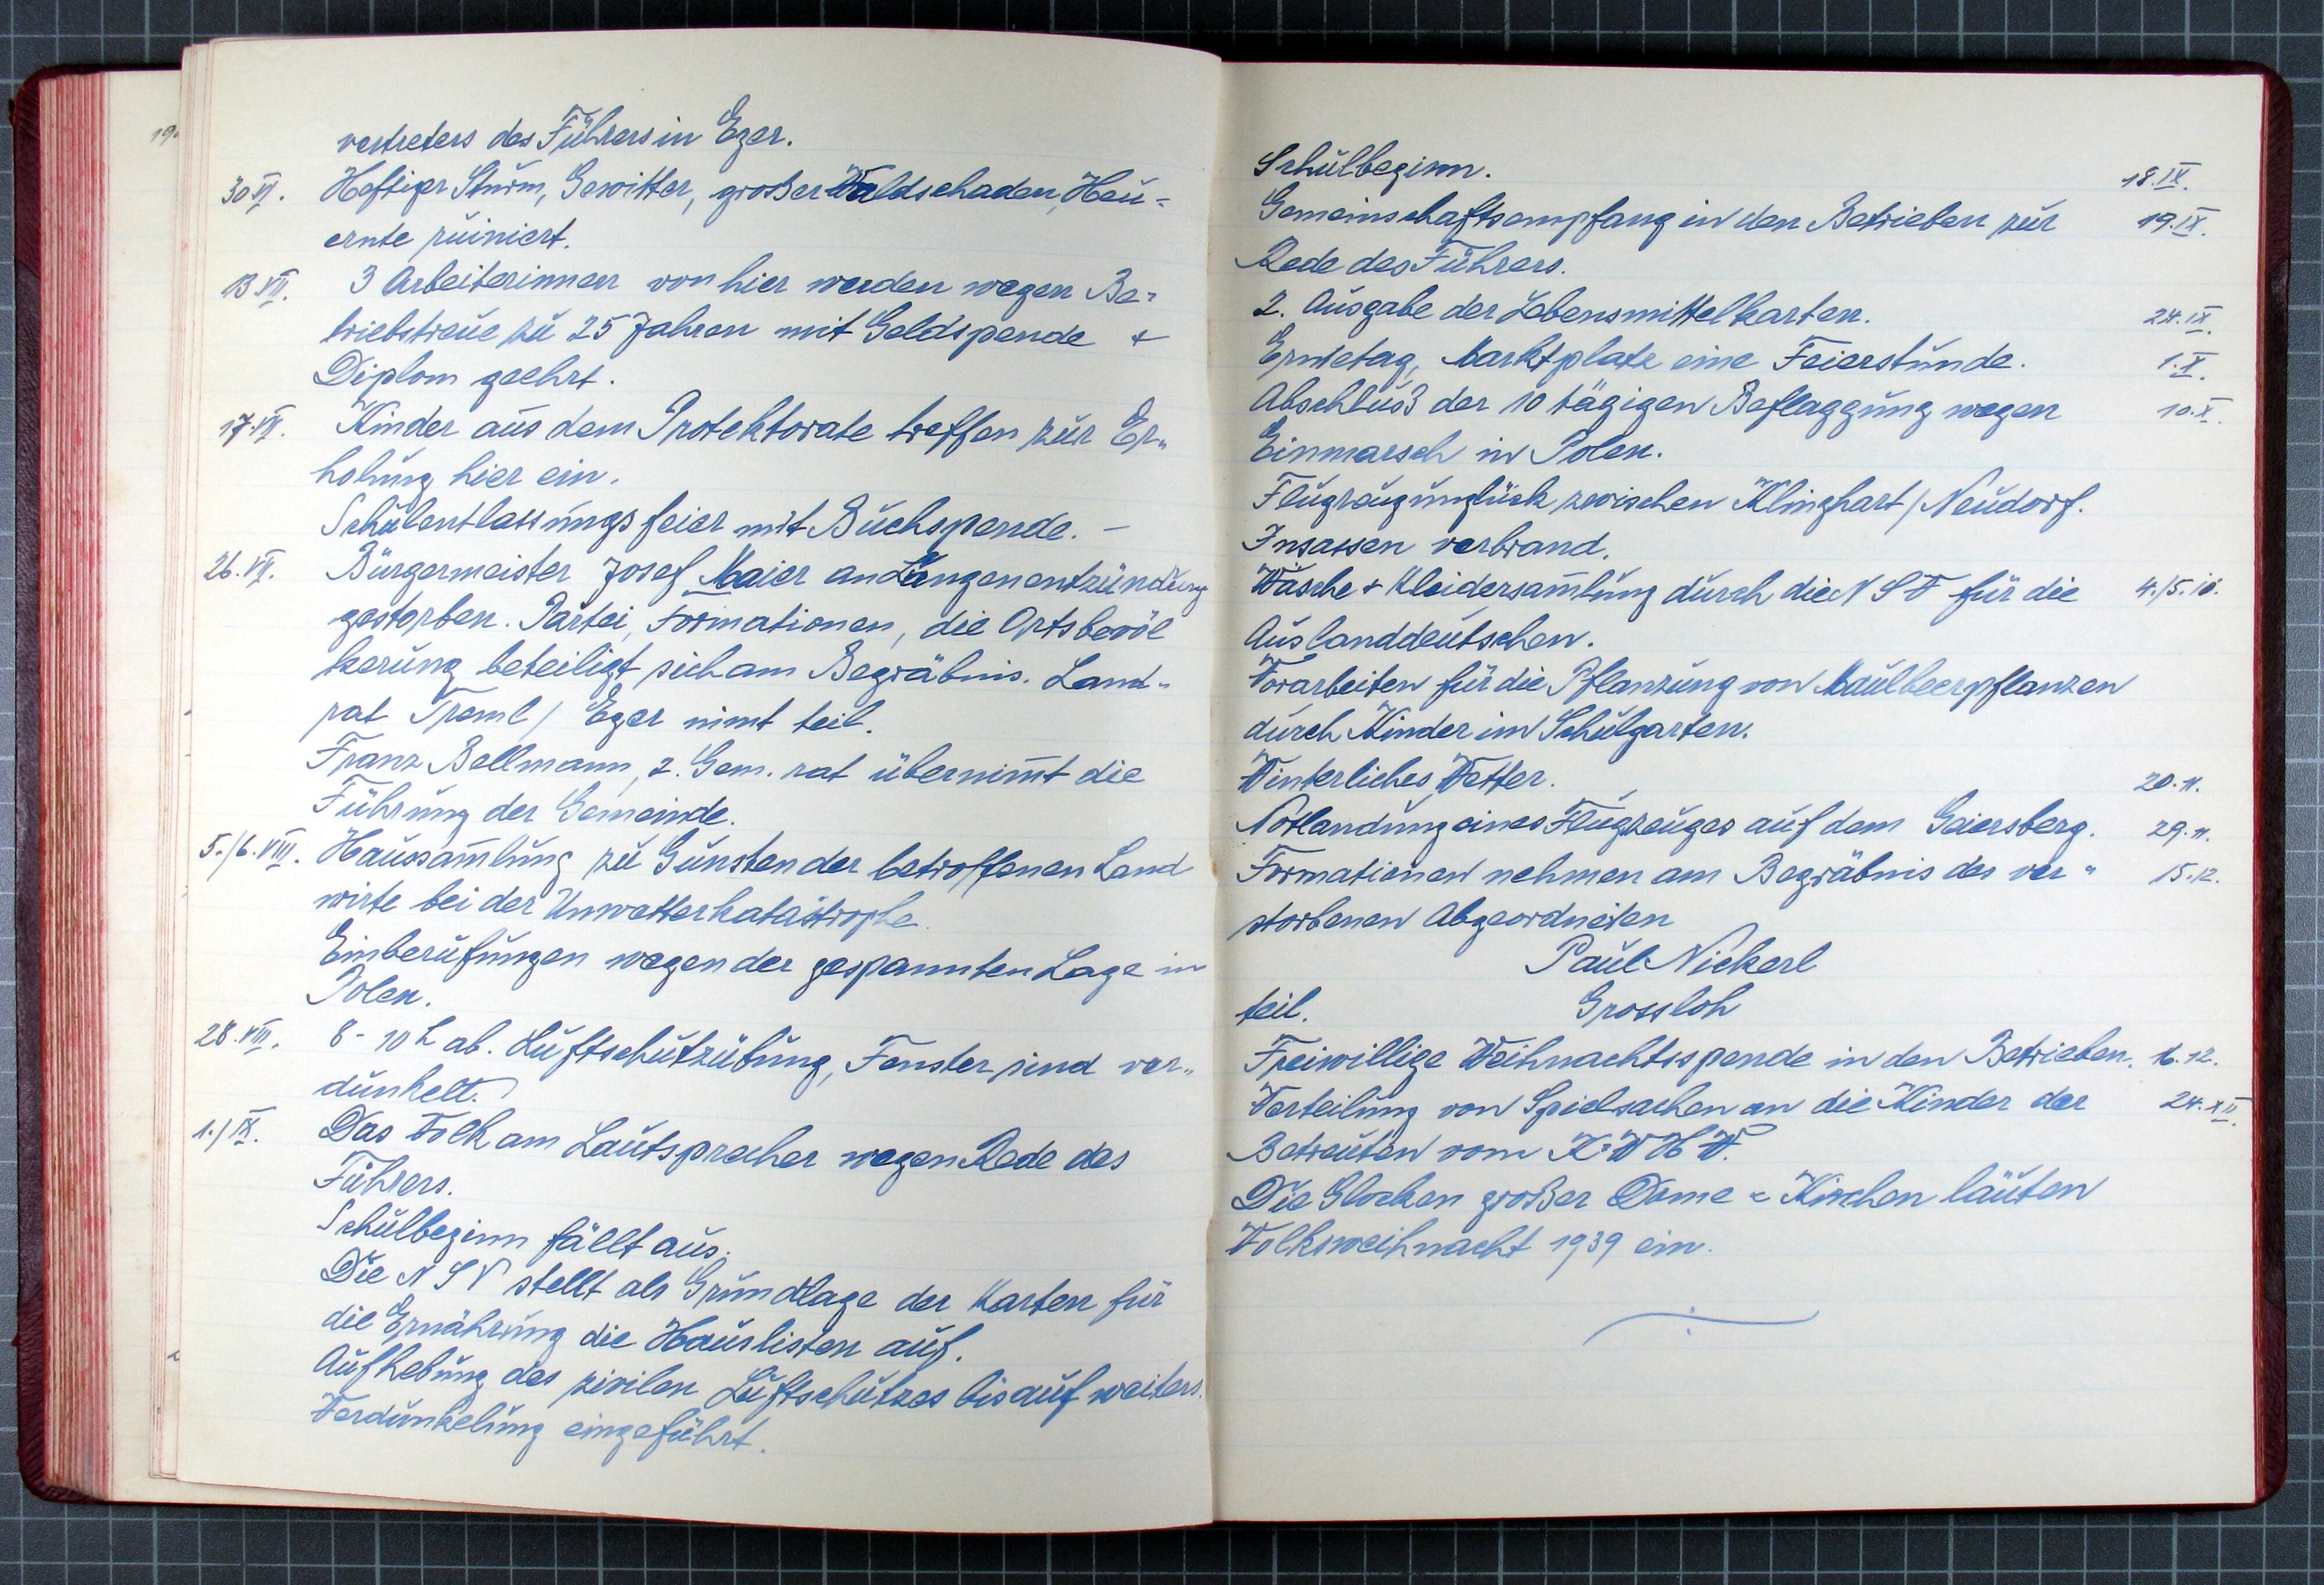 19
vertreters des Führers in Eger.
30 VI. Heftiger Sturm, Gewitter, großer Waldschaden, Heu-
ernte ruiniert.
13 VII. 3 Arbeiterinnen von hier werden wegen Be-
triebstreue zu 25 Jahren mit Geldspende +
Diplom geehrt.
17. VII. Kinder aus dem Protektorate treffen zur Er-
holung hier ein.
Schulentlassungsfeier mit Buchspende. -
26. VII. Bürgermeister Josef Maier an Lungenentzündung
gestorben. Partei, Formationen, die Ortsbevöl
kerung beteiligt sich am Begräbnis. Land-
rat Treml / Eger nimt teil.
Franz Bellmann, 2. Gem. rat übernim̄t die
Führung der Gemeinde.
5./6. VIII. Haussam̄lung zu Gunsten der betroffenen Land
wirte bei der Unwetterkatastrophe.
Einberufungen wegen der gespannten Lage in
Polen.
28. VIII. 8-10 h ab. Luftschutzübung, Fenster sind ver-
dunkelt.
1./IX. Das Volk am Lautsprecher wegen Rede des
Führers.
Schulbeginn fällt aus.
Die N S V stellt als Grundlage der Karten für
die Ernährung die Hauslisten auf.
Aufhebung des zivilen Luftschutzes bis auf weiters.
Verdunkelung eingeführt.
Schulbeginn. 18. IX.
Gemeinschaftsempfang in den Betrieben zur 19. IX.
Rede des Führers.
2. Ausgabe der Lebensmittelkarten. 24. IX.
Erntetag, Marktplatz eine Feierstunde. 1. X.
Abschluß der 10 tägigen Beflaggung wegen 10. X.
Einmarsch in Polen.
Flugzeugunglück zwischen Klinghart / Neudorf.
Insassen verbrand.
Wäsche + Kleidersam̄lung durch die N S V für die 4./5. 10.
Auslanddeutschen.
Vorarbeiten für die Pflanzung von Maulbeerpflanzen
durch Kinder im Schulgarten.
Winterliches Wetter. 20. 11.
Notlandung eines Flugzeuges auf dem Geiersberg. 29. 11.
Formationen nehmen am Begräbnis des ver- 15. 12.
storbenen Abgeordneten
Paul Nickerl
teil. Grossloh
Freiwillige Weihnachtsspende in den Betrieben. 16. 12.
Verteilung von Spielsachen an die Kinder der 24. XII.
Betreuten vom K. W H W.
Die Glocken großer Dome & Kirchen läuten
Volksweihnacht 1939 ein.